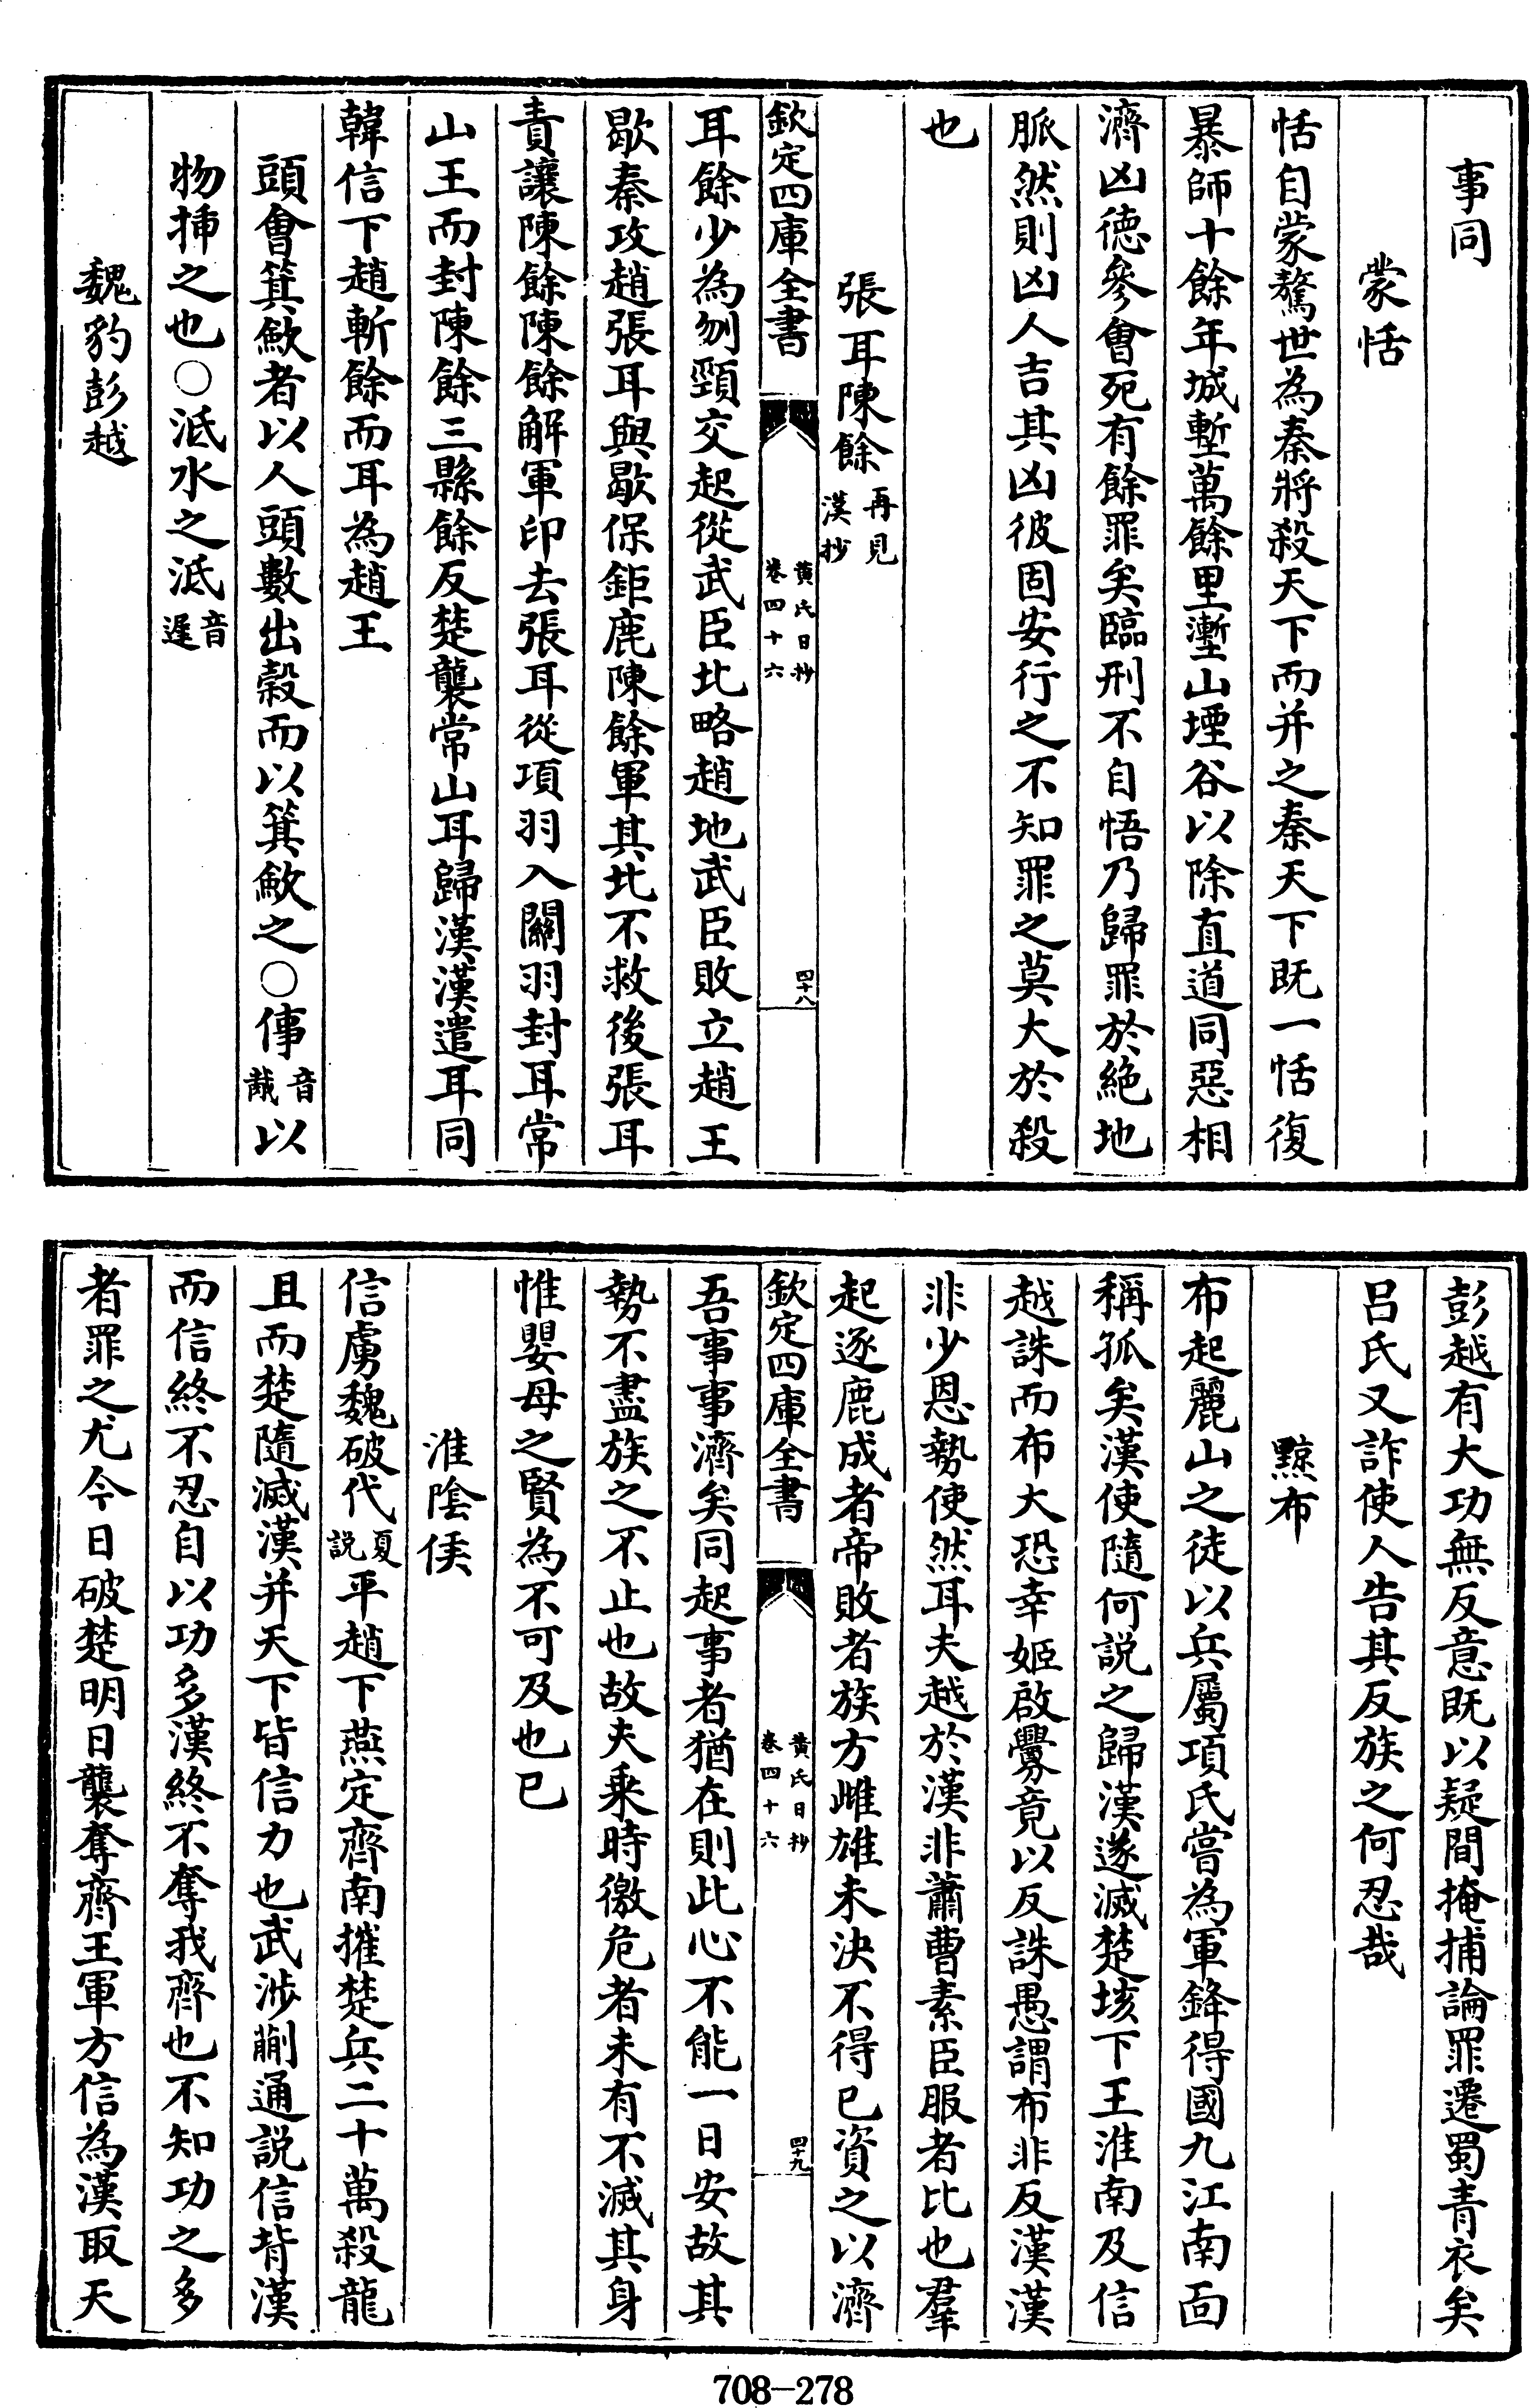 事同
蒙恬
恬自蒙驁世為秦將殺天下而并之秦天下既一恬復
暴師十餘年城塹萬餘里壍山堙谷以除直道同惡相
濟凶德參會死有餘罪矣臨刑不自悟乃歸罪於絶地
脈然則凶人吉其凶彼固安行之不知罪之莫大於殺
也
張耳陳餘再見漢抄
欽定四庫全書 黄氏日抄卷四十六 四十八
耳餘少為刎頸交起從武臣北略趙地武臣敗立趙王
歇秦攻趙張耳與歇保鉅鹿陳餘軍其北不救後張耳
責讓陳餘陳餘解軍印去張耳從項羽入關羽封耳常
山王而封陳餘三縣餘反楚襲常山耳歸漢漢遣耳同
韓信下趙斬餘而耳為趙王
頭會箕斂者以人頭數出穀而以箕斂之○倳音胾以
物揷之也○泜水之泜音遲
魏豹彭越
彭越有大功無反意既以疑間掩捕論罪遷蜀青衣矣
吕氏又詐使人告其反族之何忍哉
黥布
布起麗山之徒以兵屬項氏嘗為軍鋒得國九江南面
稱孤矣漢使隨何説之歸漢遂滅楚垓下王淮南及信
越誅而布大恐幸姬啟釁竟以反誅愚謂布非反漢漢
非少恩勢使然耳夫越於漢非蕭曹素臣服者比也羣
起逐鹿成者帝敗者族方雌雄未決不得已資之以濟
欽定四庫全書 黄氏日抄卷四十六 四十九
吾事事濟矣同起事者猶在則此心不能一日安故其
勢不盡族之不止也故夫乘時徼危者未有不滅其身
惟嬰母之賢為不可及也已
淮陰侯
信虜魏破代夏説平趙下燕定齊南摧楚兵二十萬殺龍
且而楚隨滅漢并天下皆信力也武涉蒯通説信背漢
而信終不忍自以功多漢終不奪我齊也不知功之多
者罪之尤今日破楚明日襲奪齊王軍方信為漢取天
708-278